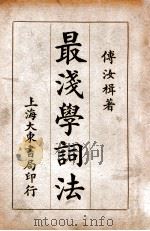 傅汝楫著
最淺學詞法
上海大東書局印行
mtoou.info